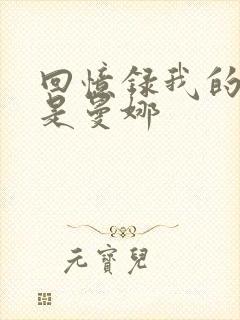 回憶録我的
是曼娜
元寶兒